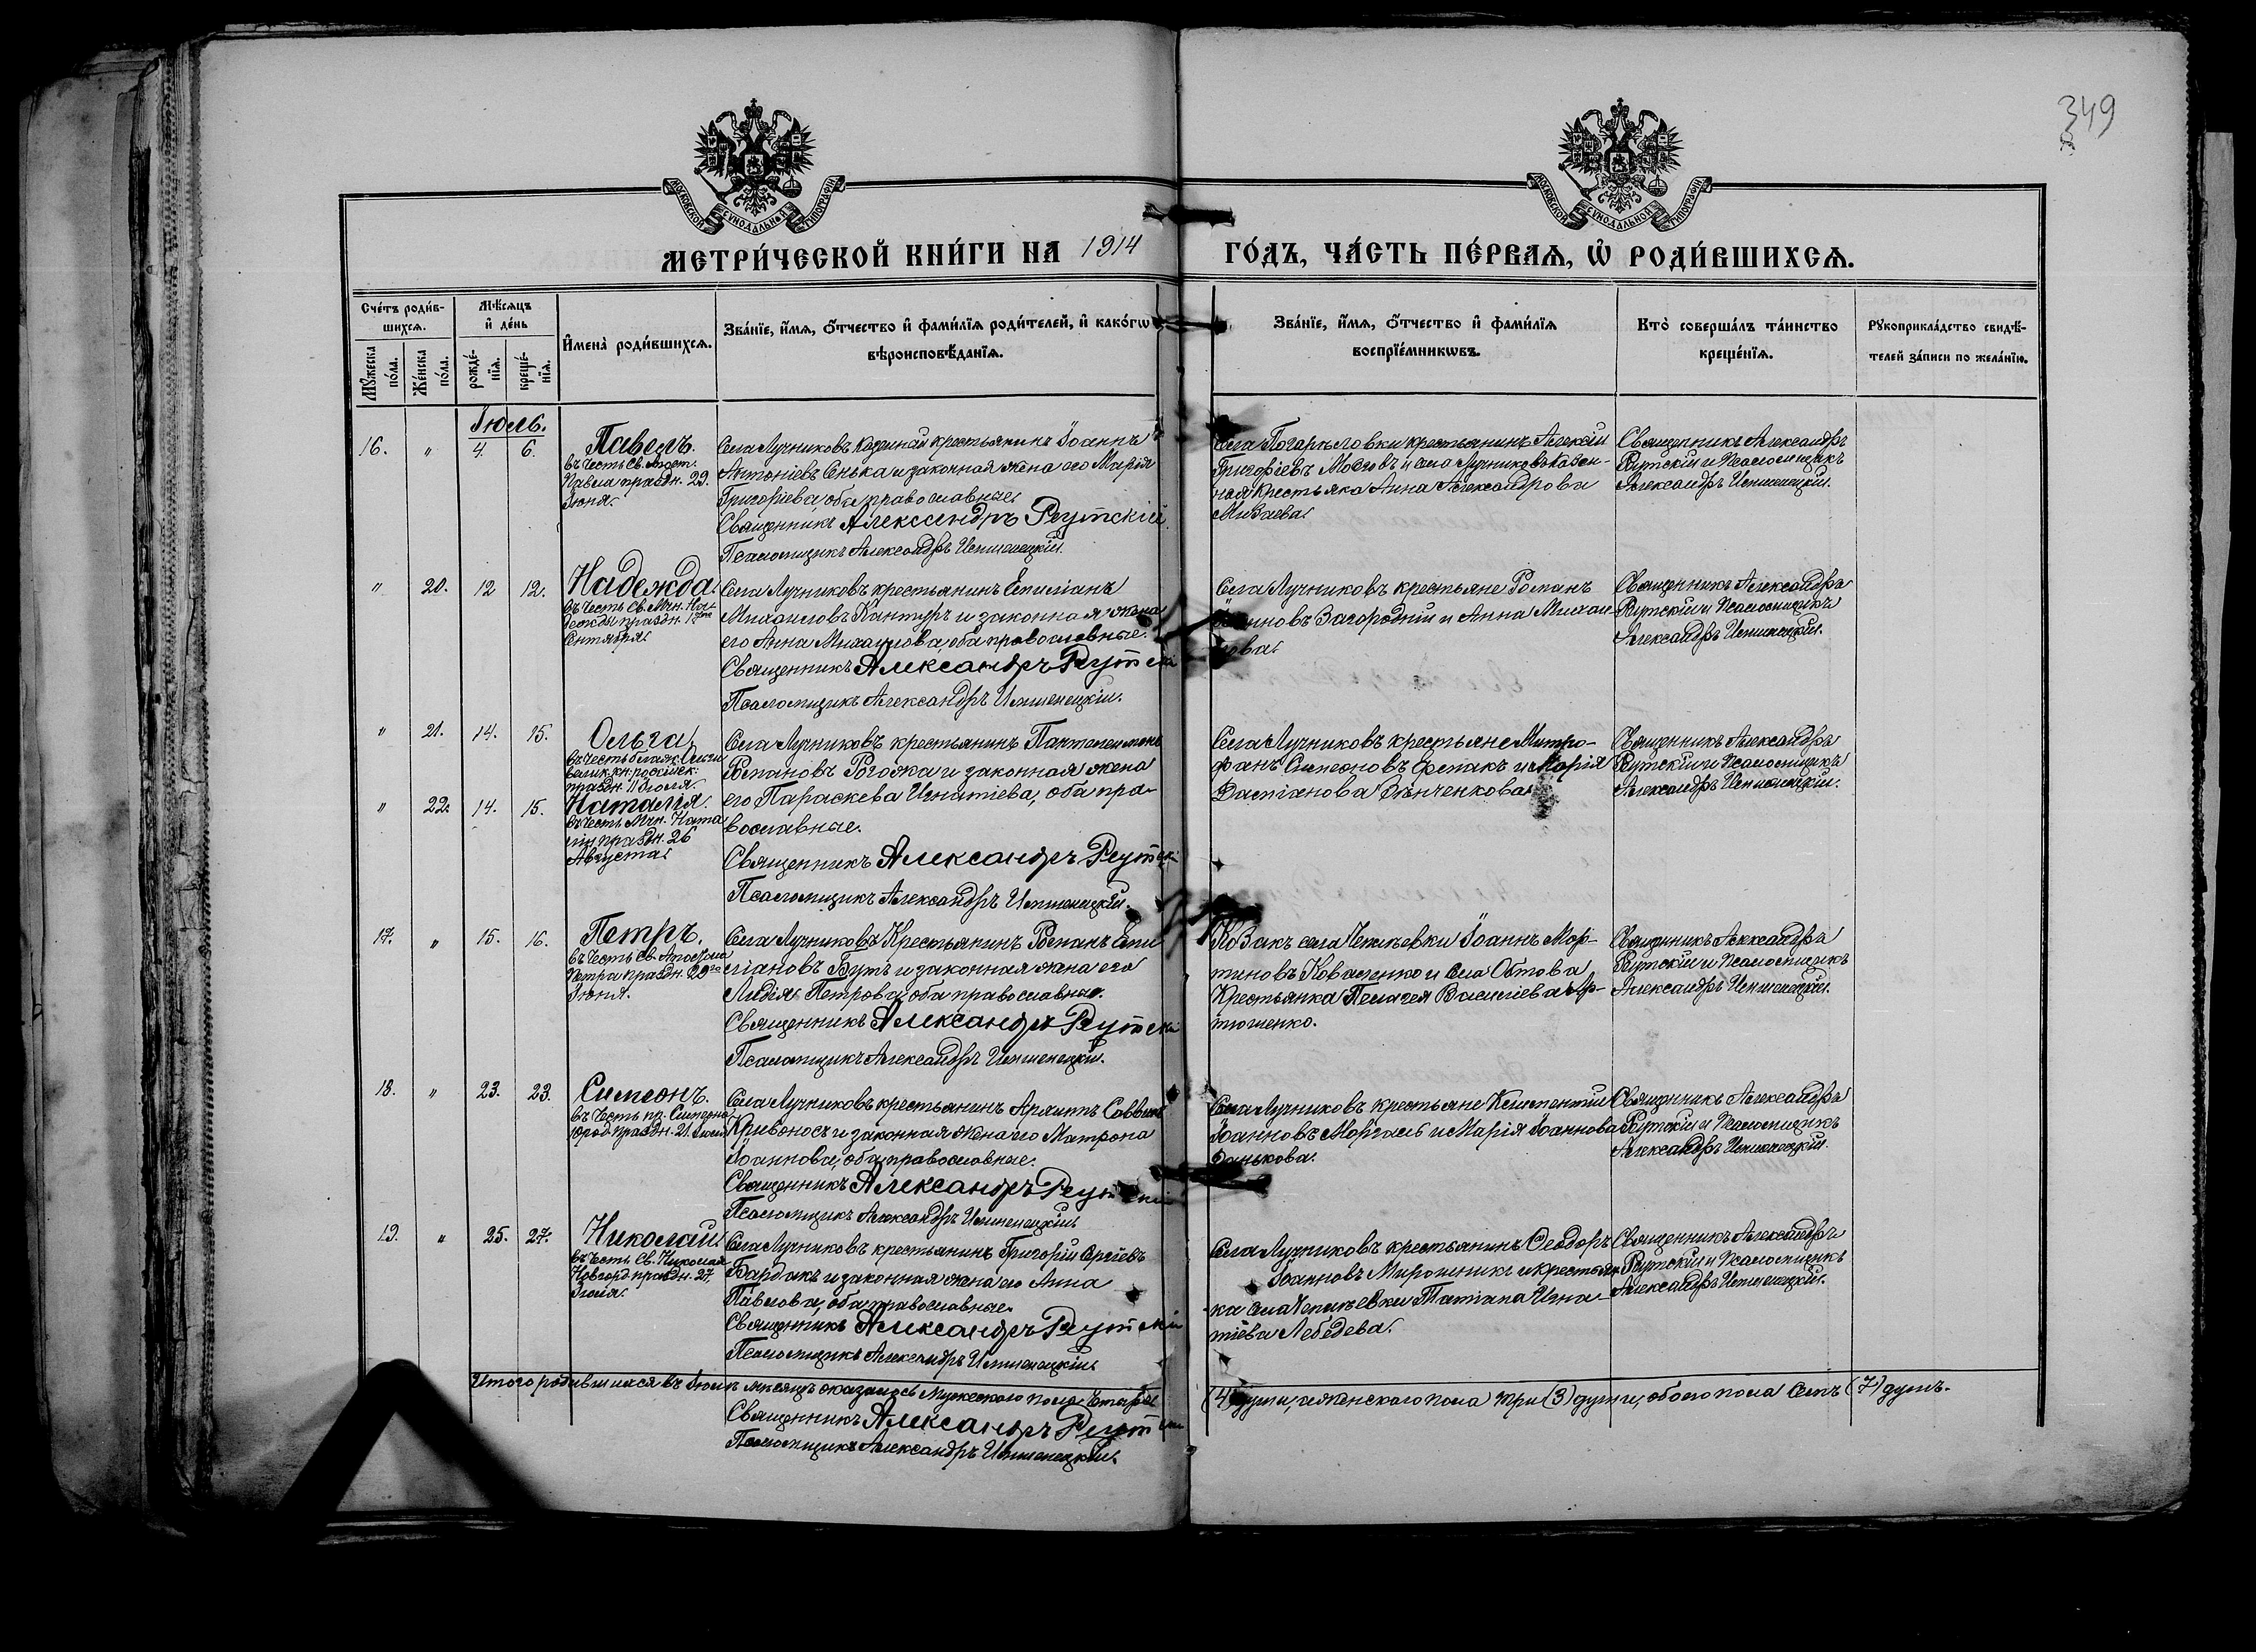 349
МОСКОВСКОЙ СѴНОДАЛЬНОЙ ТИПОГРАФІИ
МОСКОВСКОЙ СѴНОДАЛЬНОЙ ТИПОГРАФІИ
МЕТРИ́ЧЕСКОЙ КНИ́ГИ НА 1914 ГО́ДЪ, ЧА́СТЬ ПЕ́РВАѦ, Ѿ РОДИ́ВШИХСѦ.
Сче́тъ роди́в-
шихсѧ.
Мꙋ́жеска по́ла.
Же́нска по́ла.
Мѣ́сѧцъ
и҆ де́нь
рожде́-
нїѧ.
креще́-
нїѧ.
И҆мена̀ роди́вшихсѧ.
Зва́нїе, и҆́мѧ, ѻ҆́тчество и҆ фами́лїѧ роди́телей, и҆ како́гѡ
вѣроисповѣ́данїѧ.
Зва́нїе, и҆́мѧ, ѻ҆́тчество и҆ фами́лїѧ
воспрїе́мникѡвъ.
Кто̀ соверша́лъ та́инство
креще́нїѧ.
Рꙋкоприкла́дство свидѣ́-
телей за́писи по жела́нїю.
Іюль.
16. " 4. 6.
Павелъ.
въ честь Св. Апост.
Павла праздн. 29.
Іюня.
Села Лучниковъ казенный крестьянинъ Іоаннъ
Антоніевъ Сенька и законная жена его Марія
Григоріева, оба православные.
Священникъ Александръ Реутскій
Псаломщикъ Александръ
Села крестьянинъ Алексій
Григоріевъ и села Лучниковъ казен-
ная крестьянка Анна Александрова
Священникъ Александръ
Реутскій и Псаломщикъ
Александръ
" 20. 12 12.
Надежда.
въ честь Св. Мчн. На-
дежды праздн. 17го
Сентября.
Села Лучниковъ крестьянинъ Епифанъ
Михаиловъ Кантуръ и законная жена
его Анна Михаилова, оба православные.
Священникъ Александръ Реутскі
Псаломщикъ Александръ
Села Лучниковъ крестьяне Романъ
Іоанновъ Загородній и Анна Михаи-
лова.
Священникъ Александръ
Реутскій и Псаломщикъ
Александръ
" 21. 14. 15.
Ольга
въ честь благов. Ольги
велик. кн. россійск.
праздн. 11 Іюля.
" 22. 14. 15.
Наталія.
въ честь Мчн. Ната
ліи праздн. 26
Августа.
Села Лучниковъ крестьянинъ Пантелеимонъ
Романовъ Рогожа и законная жена
его Параскева Игнатіева, оба пра-
вославные.
Священникъ Александръ Реутскі
Псаломщикъ Александръ
Села Лучниковъ крестьяне Митро-
фанъ Симеоновъ и Марія
Даміанова
Священникъ Александръ
Реутскій и Псаломщикъ
Александръ
17. " 15. 16.
Петръ.
въ честь Св. Апостола
Петра праздн. 29го
Іюня.
Села Лучниковъ Крестьянинъ Романъ Епи
фановъ Бутъ и законная жена его
Лидія Петрова, оба православные.
Священникъ Александръ Реутскі
Псаломщикъ Александръ
Козакъ села Чепиѣевки Іоаннъ Мар-
тиновъ Коваленко и села Обтова
Крестьянка Пелагея Василіева Ар-
тюшенко.
Священникъ Александръ
Реутскій и Псаломщикъ
Александръ
18. " 23. 23.
Симеонъ.
въ честь пр. Симеона
юрод. праздн. 21. Іюля
Села Лучниковъ крестьянинъ Саввинъ
Кривоносъ и законная жена его Матрона
Іоаннова, оба православные.
Священникъ Александръ Реутскій
Псаломщикъ Александръ
Села Лучниковъ крестьяне Климентій
Іоанновъ и Марія Іоаннова
Данькова.
Священникъ Александръ
Реутскій и Псаломщикъ
Александръ
19. " 25. 27.
Николай.
въ честь Св. Николая
Новгор. праздн. 27.
Іюля.
Села Лучниковъ крестьянинъ Григорій Сергіевъ
Бардакъ и законная жена его Анна
Павлова, оба православные.
Священникъ Александръ Реутскій
Псаломщикъ Александръ
Села Лучниковъ крестьянинъ Ѳеодоръ
Іоанновъ Мирошникъ и крестьян-
ка села Чепиѣевки Татіана Игна-
тіева Лебедева.
Священникъ Александръ
Реутскій и Псаломщикъ
Александръ
Итого родившихся въ Іюлѣ мѣсяцѣ оказалось Мужескаго пола четыре (4) души, женскаго пола три (3) души, обоего пола семь (7) душъ.
Священникъ Александръ Реутскі
Псаломщикъ Александръ